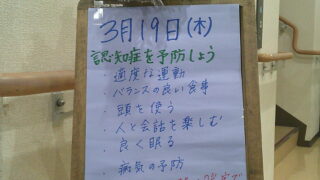 3月19日(木)
認知症を予防しよう
・適度な運動
・バランスの良い食事
・頭を使う
・人と会話を楽しむ
・良く眠る
・病気の予防